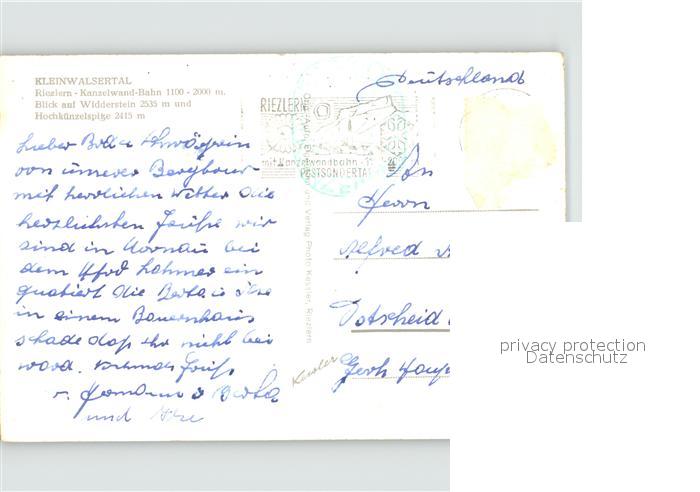 KLEINWALSERTAL
Riezlern - Kanzelwand-Bahn 1100 - 2000 m.
Blick auf Widderstein 2535 m und
Hochkünzelspitze 2415 m
Lieber
von unserer Bergtour
mit herrlichen Wetter die
herzlichsten Grüße wir
sind in Kornau bei
dem Lohmer ein
quatiert die Berta
in einem Bauernhaus
schade daß ihr nicht bei
ward. Grüße
v. Hermann u Berta
und Ilse
RIEZLERN
mit Kanzelwandbahn
POSTSONDERTA
Verlag Photo Kessler, Riezlern
Kessler
Deutschland
An
Herrn
Alfred
Votscheid
Gerh
privacy protection
Datenschutz